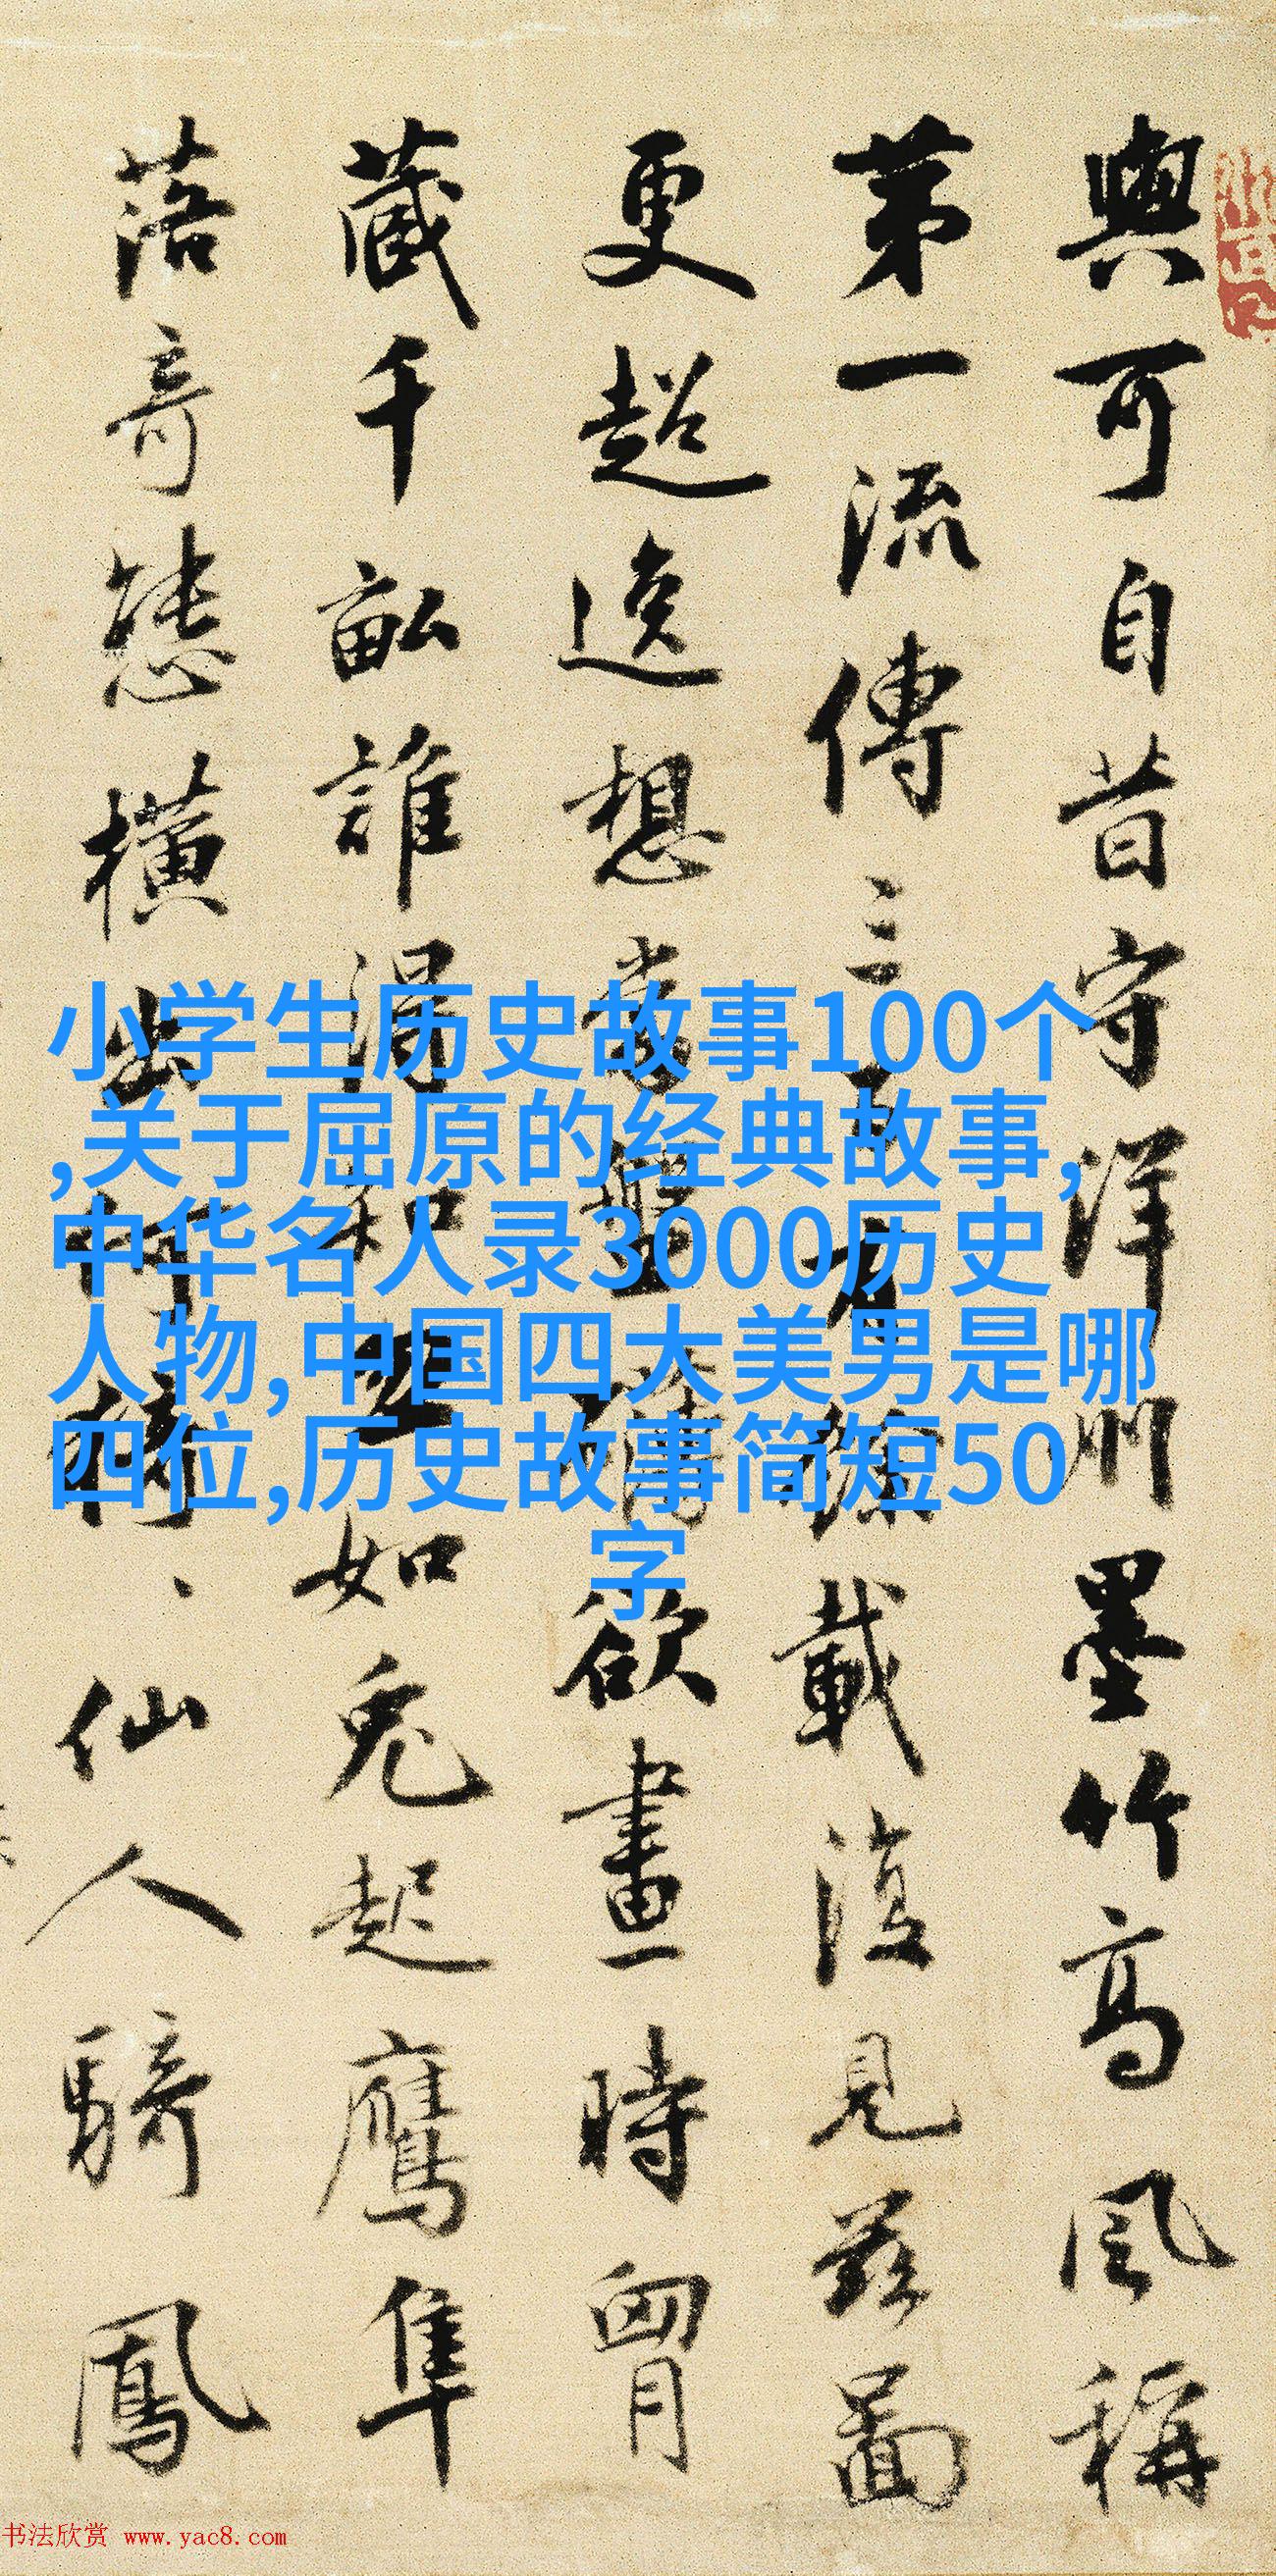 與可自昔守洋州墨竹高風稱
第一流傳三百有餘載復見茲圖
更超逸想當盤礴欲畫時胷
藏千畝誰得知如兔起鶻隼
落奇態橫出仙人騎鳳
小学生历史故事100个
,关于屈原的经典故事,
中华名人录3000历史
人物,中国四大美男是哪
四位,历史故事简短50
字
书法欣赏 www.yac8.com